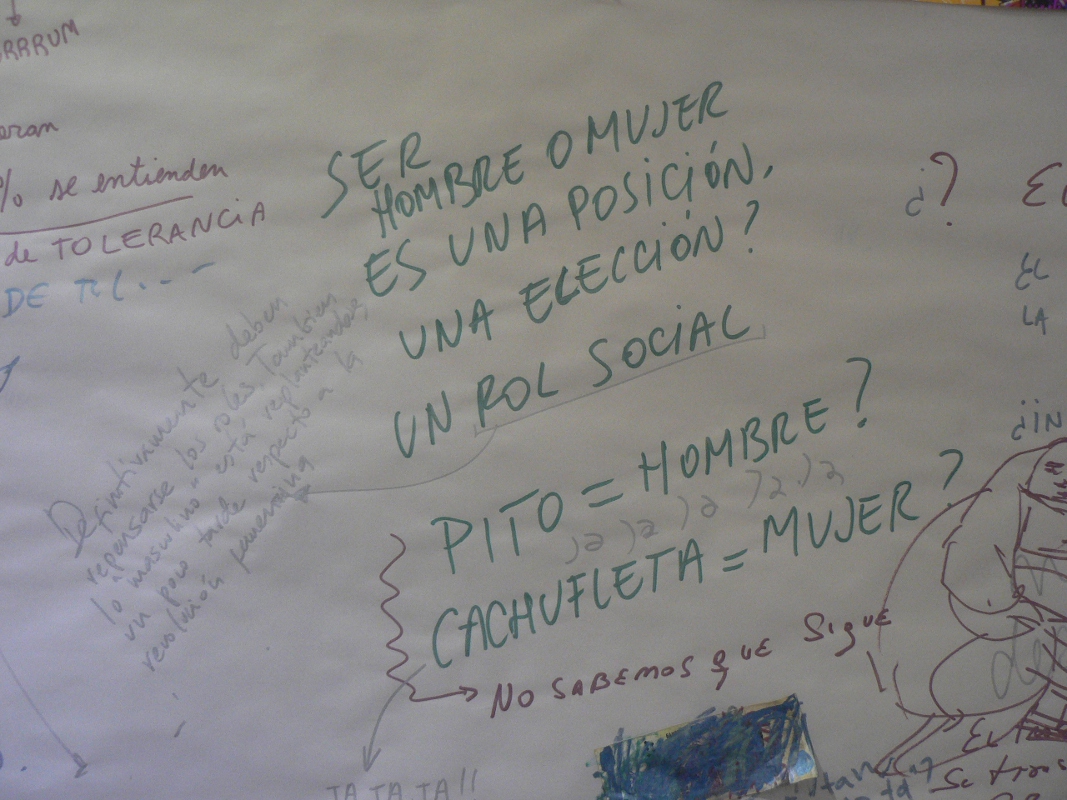 RRRUM
eran
% se entienden
de TOLERANCIA
DE TI(...
SER
HOMBRE O MUJER
ES UNA POSICIÓN,
UNA ELECCIÓN?
UN ROL SOCIAL
Definitivamente deben
repensarse los roles. Tambien
lo "masculino" está replanteandose,
un poco tarde respecto a la
revolución femenina
PITO = HOMBRE?
ja ja ja ja ja
CACHUFLETA = MUJER?
NO SABEMOS QUE SIGUE
JA JA JA!!
¿?
EL
LA
¿IN
Se